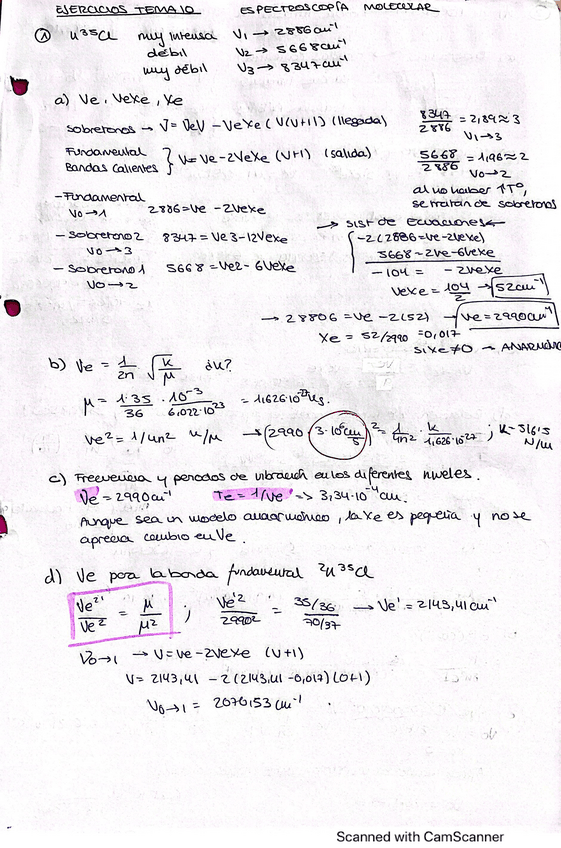 EJERCICIOS TEMA 10 ESPECTROSCOPÍA MOLECULAR
① H³⁵Cl muy intensa V₁ → 2886 cm⁻¹
débil V₂ → 5668 cm⁻¹
muy débil V₃ → 8347 cm⁻¹
a) Ve, VeXe, Xe
Sobretonos → V = VeV - VeXe (V(V+1)) (llegada)
Fundamental
Bandas Calientes } V = Ve - 2VeXe (V+1) (salida)
8347/2886 = 2,89 ≈ 3
V₁→3
5668/2886 = 1,96 ≈ 2
V₀→2
al no haber ↑Tº,
se tratan de sobretonos
- Fundamental
V₀→1 2886 = Ve - 2VeXe
- Sobretono 2 8347 = Ve3 - 12VeXe
V₀→3
- Sobretono 1 5668 = Ve2 - 6VeXe
V₀→2
→ Sist de Ecuaciones ←
-2(2886 = Ve - 2VeXe)
5668 = 2Ve - 6VeXe
-104 = -2VeXe
VeXe = 104/2 → 52 cm⁻¹
→ 28806 = Ve - 2(52) → Ve = 2990 cm⁻¹
Xe = 52/2990 = 0,017
si Xe ≠ 0 → ANARMÓNICO
b) Ve = 1/2π √k/μ ¿k?
μ = 1·35/36 · 10⁻³/6,022·10²³ = 1,626·10⁻²⁷ kg.
Ve² = 1/4π² k/μ → (2990 · 3·10⁸ cm/s)² = 1/4π² · k/1,626·10⁻²⁷ ; k = 516,5
N/m
c) Frecuencia y periodos de vibración en los diferentes niveles.
Ve = 2990 cm⁻¹ Te = 1/Ve => 3,34·10⁻⁴ cm.
Aunque sea un modelo anarmónico, la Xe es pequeña y no se
aprecia cambio en Ve.
d) Ve para la banda fundamental ²H ³⁵Cl
Ve²'/Ve² = μ/μ² ; Ve'²/2990² = 35/36/70/37 → Ve' = 2143,41 cm⁻¹
V₀→1 → V = Ve - 2VeXe (V+1)
V = 2143,41 - 2(2143,41·0,017)(0+1)
V₀→1 = 2070,53 cm⁻¹
Scanned with CamScanner